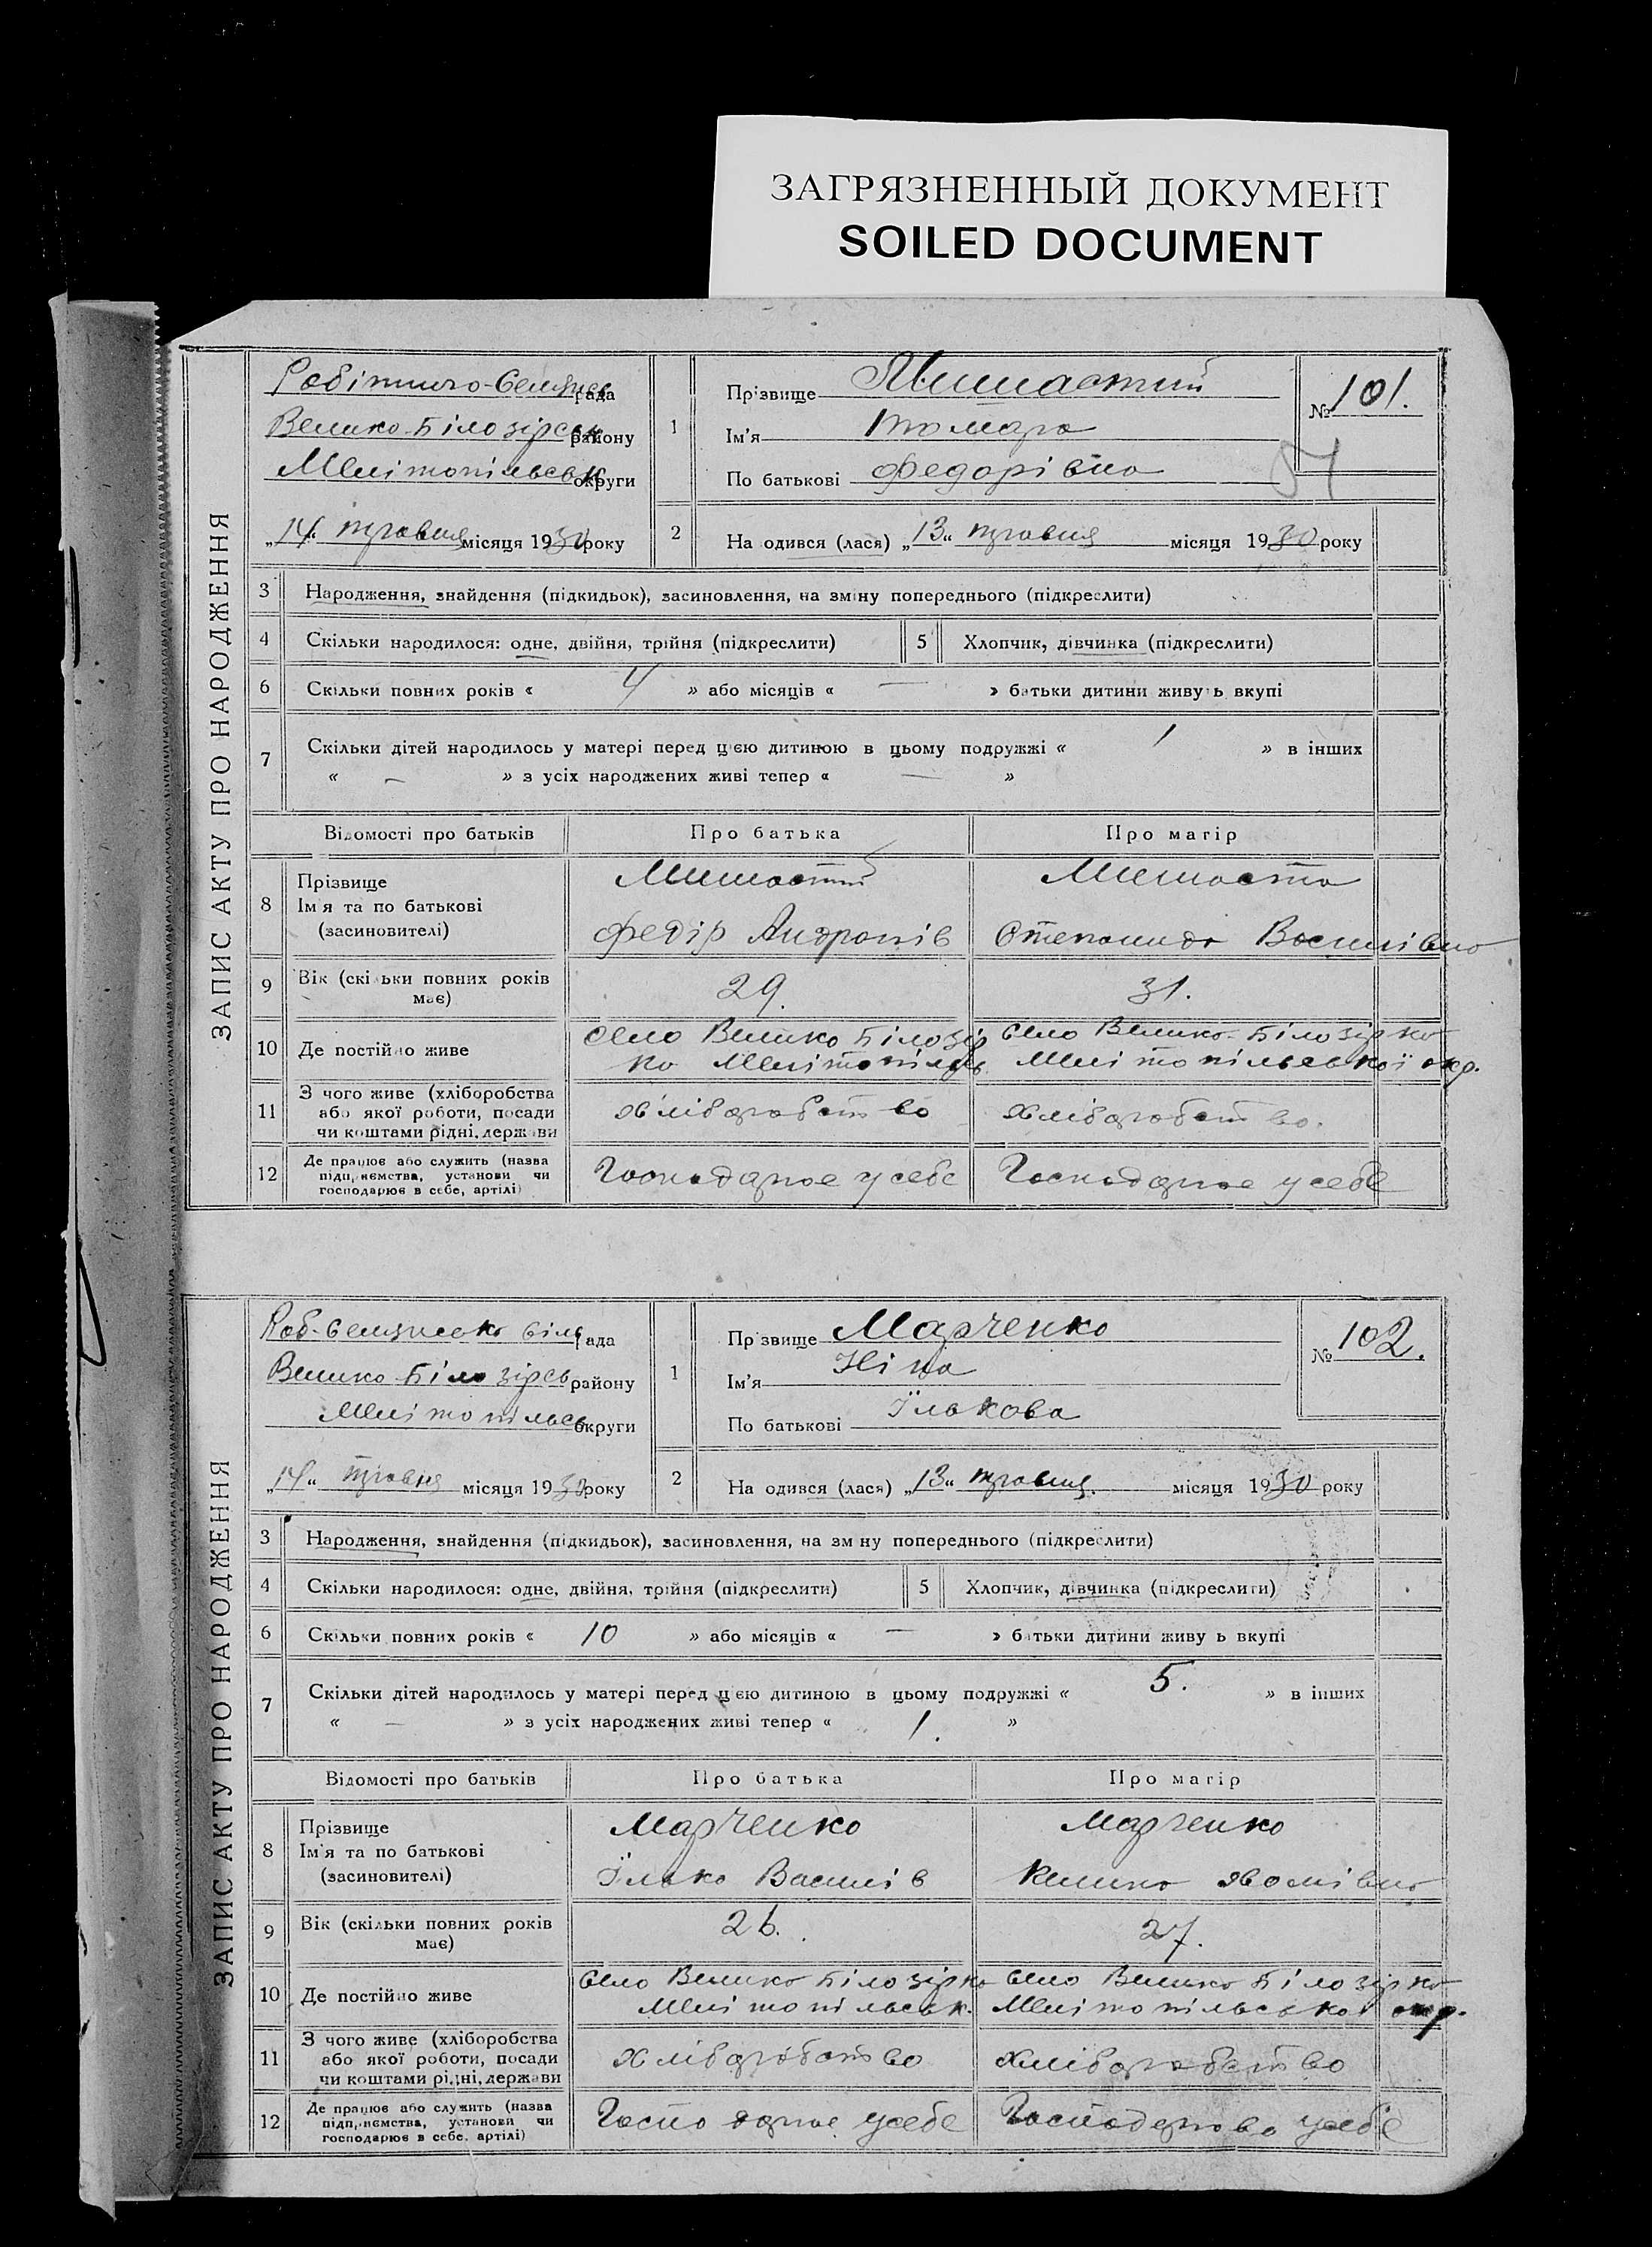 ЗАГРЯЗНЕННЫЙ ДОКУМЕНТ
SOILED DOCUMENT
ЗАПИС АКТУ ПРО НАРОДЖЕННЯ
Робітничо-Селянсь рада
Велико-Білозірськ району
Мелітопільськ округи
„14“ травня місяця 1930 року
1
Прізвище
Ім'я Тамара
По батькові Федорівна
№ 101.
2
На одився (лася) „13“ травня місяця 1930 року
3 Народження, знайдення (підкидьок), засиновлення, на зміну попереднього (підкреслити)
4 Скільки народилося: одне, двійня, трійня (підкреслити) 5 Хлопчик, дівчинка (підкреслити)
6 Скільки повних років « 4 » або місяців « — » батьки дитини живуть вкупі
7 Скільки дітей народилось у матері перед цією дитиною в цьому подружжі « 1 » в інших
« — » з усіх народжених живі тепер « — »
Відомості про батьків Про батька Про матір
8 Прізвище
Ім'я та по батькові
(засиновителі)
Мишастий Мишаста
Федір Андронів Степанида Василівна
9 Вік (скільки повних років має) 29. 31.
10 Де постійно живе
Село Велико Білозір Село Велико-Білозірко
ка Мелітопільсь Мелітопільської окр.
11 З чого живе (хліборобства
або якої роботи, посади
чи коштами рідні, держави
хліборобство хліборобство.
12 Де працює або служить (назва
підприємства, установи чи
господарює в себе, артілі)
Господарює у себе Господарює у себе
ЗАПИС АКТУ ПРО НАРОДЖЕННЯ
Роб-селянсько сіль рада
Велико-Білозірсь району
Мелітопільсь округи
„14“ травня місяця 1930 року
1
Пр звище Марченко
Ім'я Ніна
По батькові Їлькова
№ 102.
2
На одився (лася) „13“ травня. місяця 1930 року
3 Народження, знайдення (підкидьок), засиновлення, на зм ну попереднього (підкреслити)
4 Скільки народилося: одне, двійня, трійня (підкреслити) 5 Хлопчик, дівчинка (підкреслити)
6 Скільки повних років « 10 » або місяців « — » батьки дитини живу ь вкупі
7 Скільки дітей народилось у матері перед цією дитиною в цьому подружжі « 5. » в інших
« — » з усіх народжених живі тепер « 1. »
Відомості про батьків Про батька Про матір
8 Прізвище
Ім'я та по батькові
(засиновителі)
Марченко Марченко
Їлько Василів
9 Вік (скільки повних років має) 26. 27.
10 Де постійно живе
Село Велико Білозірко Село Велико Білозірко
Мелітопільськ. Мелітопільської окр.
11 З чого живе (хліборобства
або якої роботи, посади
чи коштами рідні, держави
хліборобство хліборобство
12 Де працює або служить (назва
підприємства, установи чи
господарює в себе, артілі)
Господарює у себе у себе